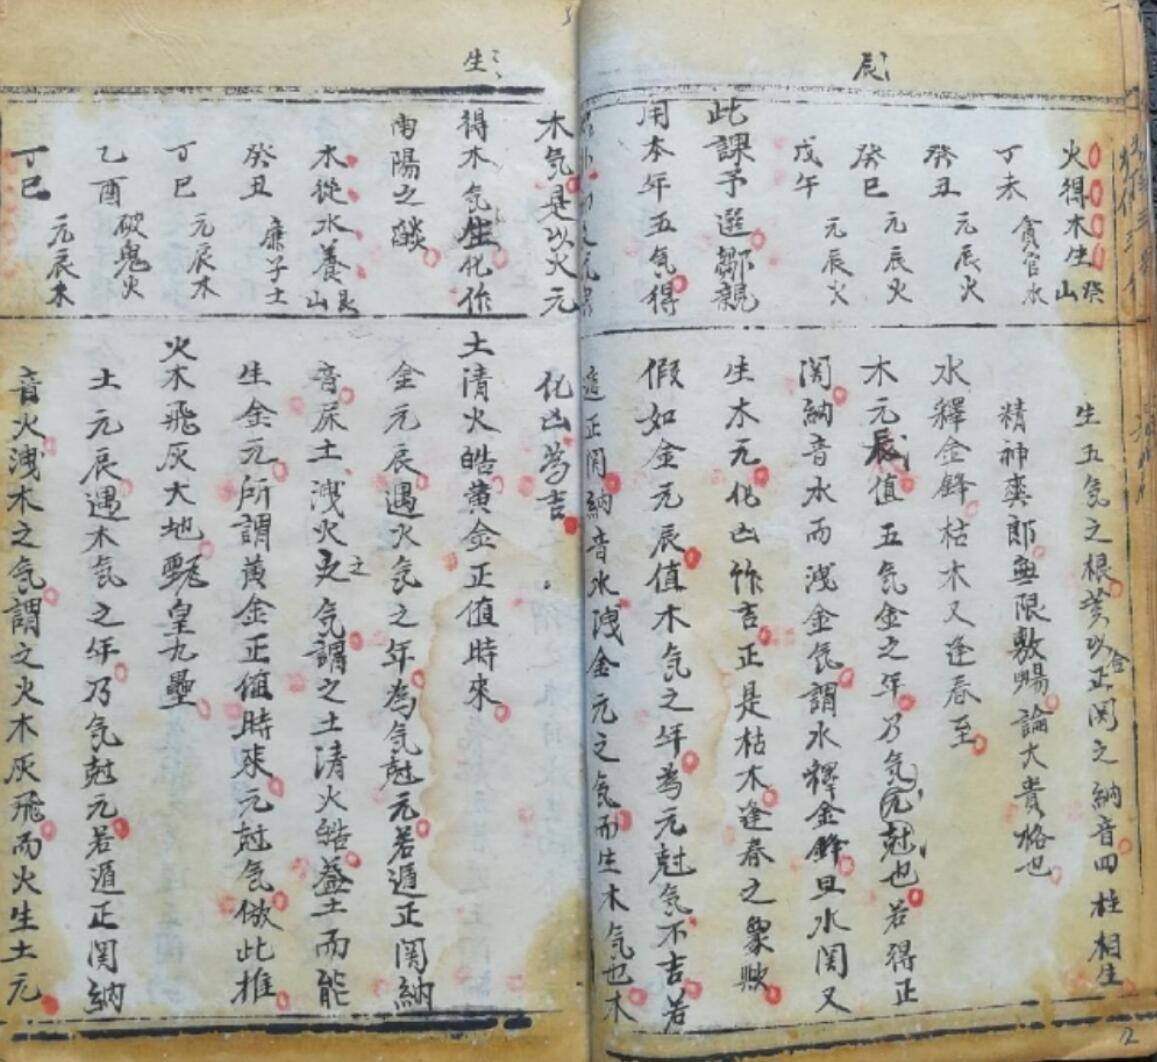 辰
火得木生 癸山
丁未 貪官水
癸丑 元辰火
癸巳 元辰火
戊午 元辰火
此課予選鄒親
用本年五氣得
生五氣之根黄以正関之納音四柱相生
精神爽郎無限敷暢論大貴格也
水釋金鋒枯木又逢春至
木元辰值五氣金之年乃気元尅也若得正
関納音水而洩金氣謂水釋金鋒且水関又
生木元化凶作吉正是枯木逢春之象歟
假如金元辰值木氣之年為元尅気不吉若
遁正関納音水洩金元之氣而生木气也木
生
木氣是以火元
得木氣生化作
南陽之燄
木從水養 艮山
癸丑 廉子土
丁巳 元辰木
乙酉 破鬼火
丁巳 元辰木
化凶為吉
土清火皓黄金正值時來
金元辰遇火氣之年為气尅元若遁正関納
音屎土洩火之気謂之土清火皓益土而能
生金元所謂黄金正值時來元尅気倣此推
火木飛灰大地甄皇九壘
土元辰遇木気之年乃気尅元若遁正関納
音火洩木之気謂之火木灰飛而火生土元